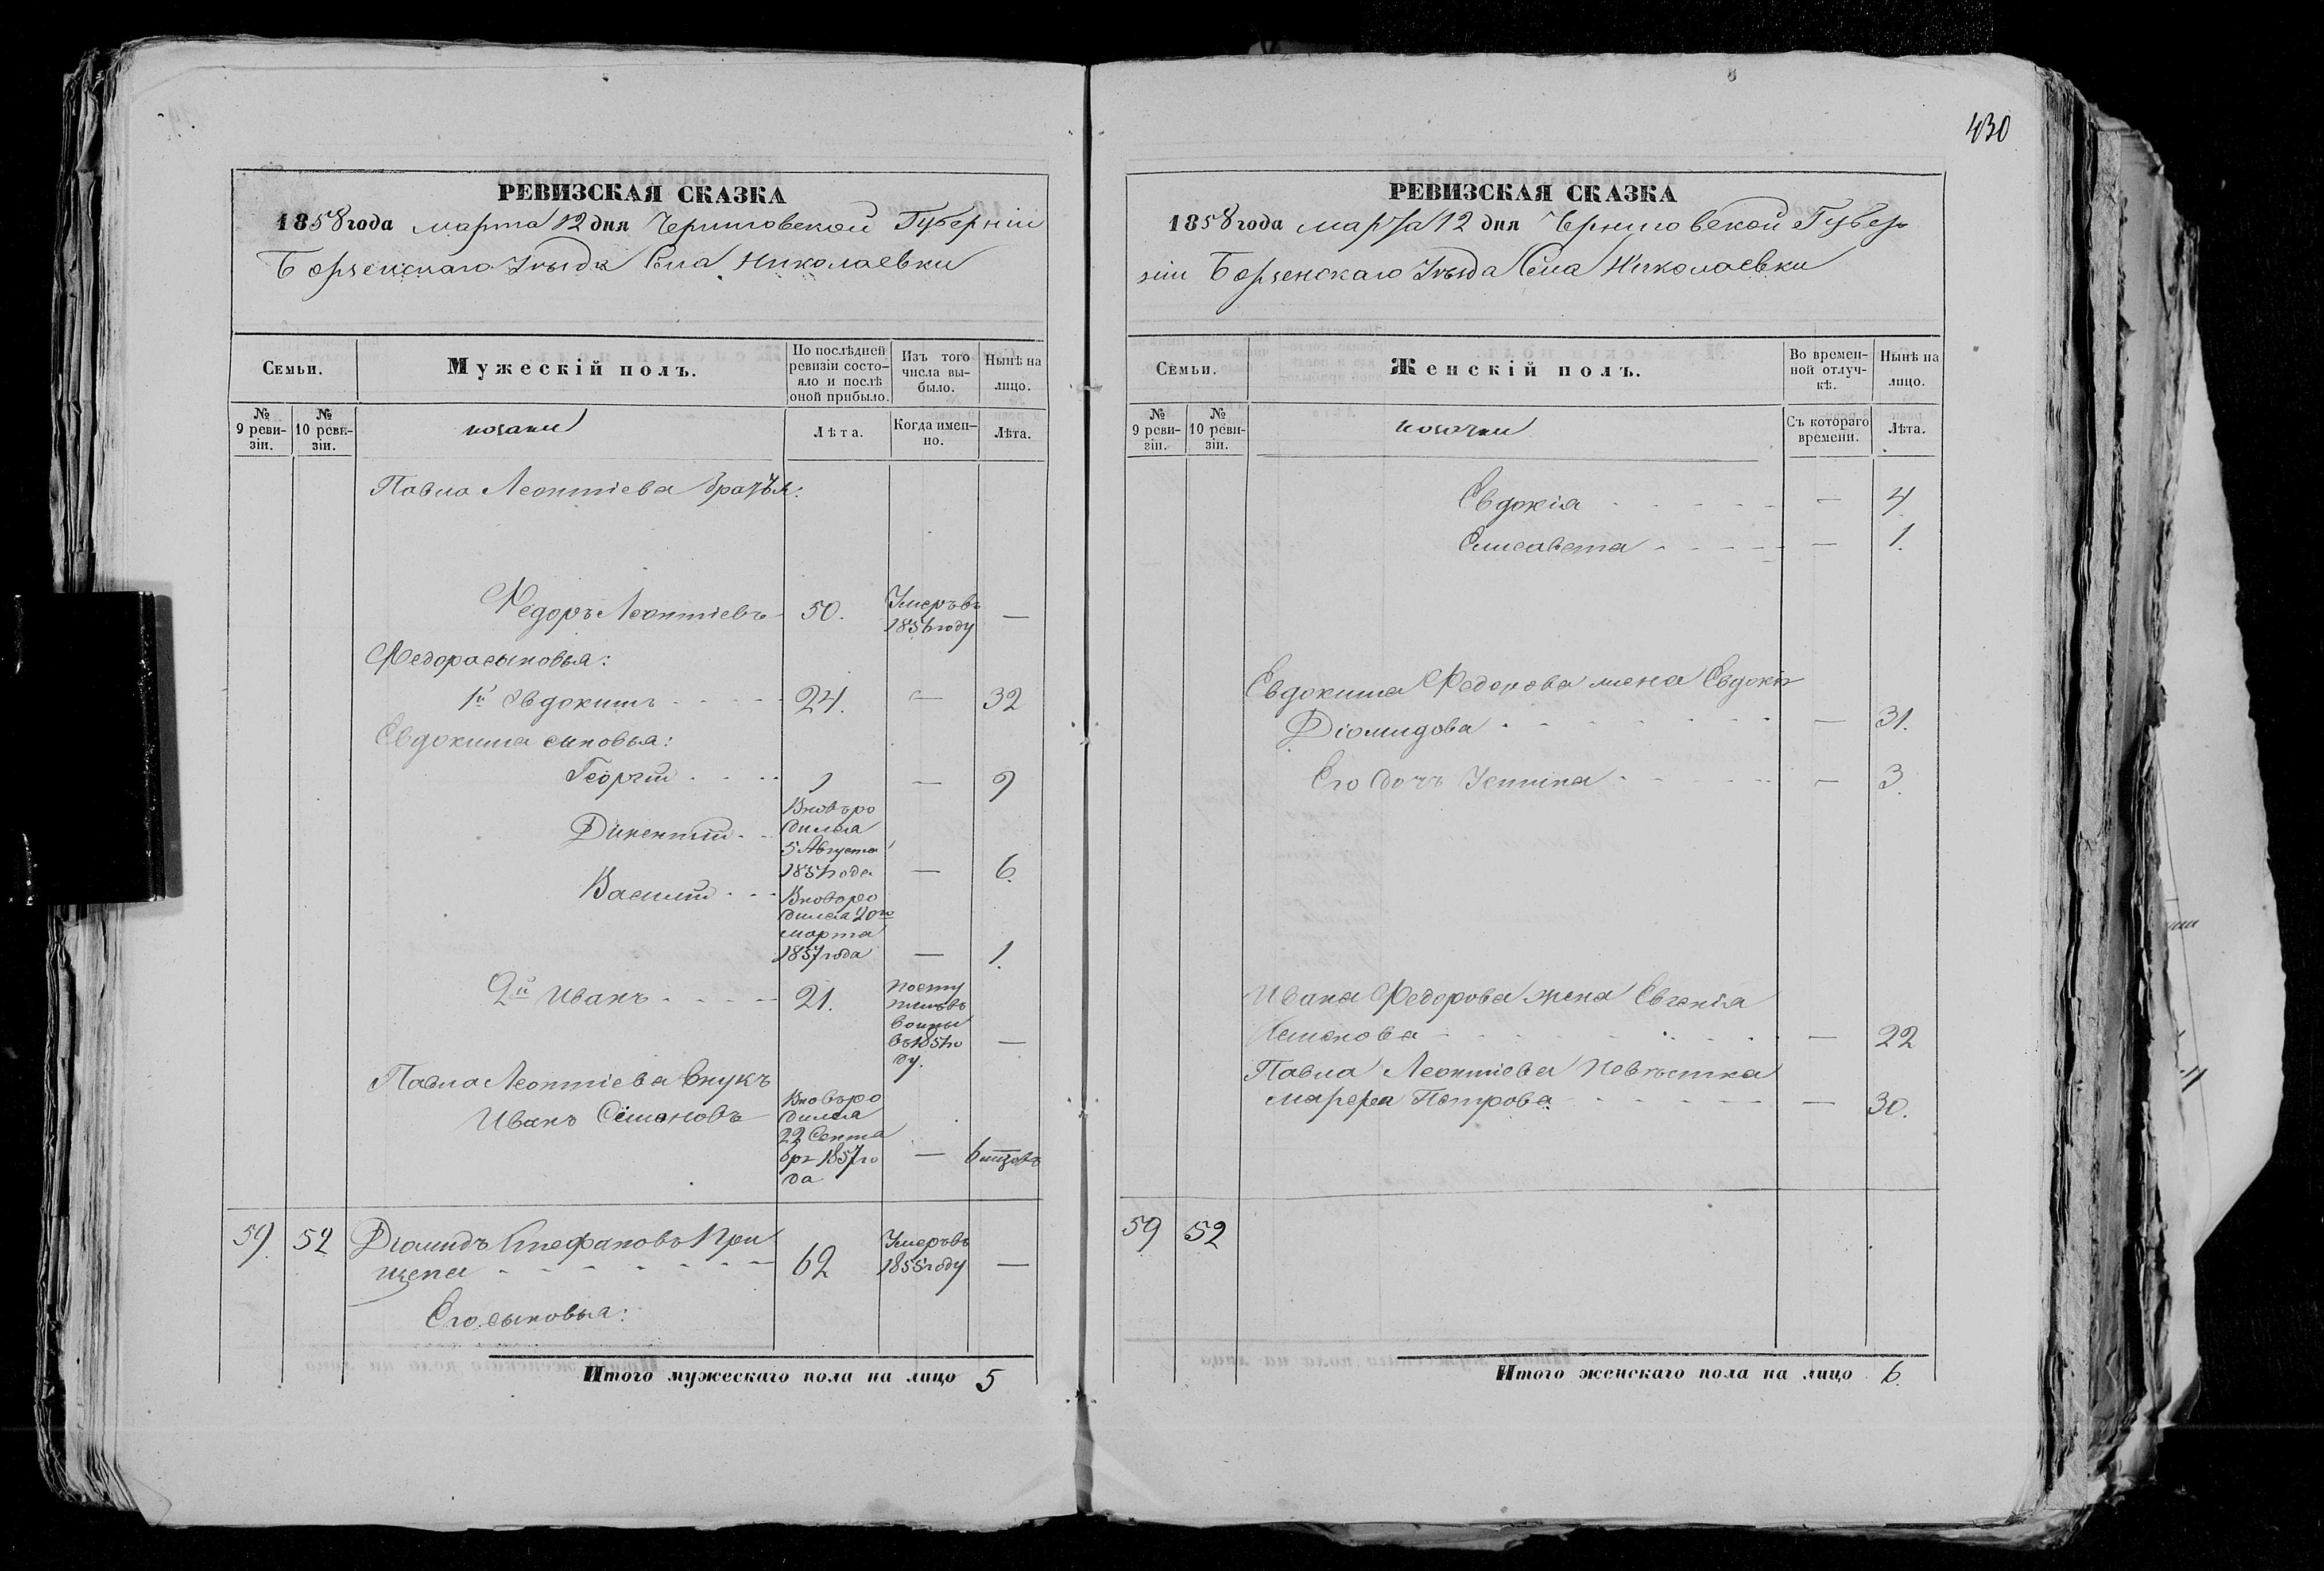 430
РЕВИЗСКАЯ СКАЗКА
1858 года марта 12 дня Черниговской Губерніи
Борзенскаго Уѣзда Села Николаевки
Семьи.
Мужескій полъ.
По послѣдней ревизіи состояло и послѣ оной прибыло.
Изъ того числа выбыло.
Нынѣ на лицо.
№ 9 ревизіи.
№ 10 ревизіи.
козаки
Лѣта.
Когда именно.
Лѣта.
Павла Леонтіева братья:
Федоръ Леонтіевъ 50. Умеръ въ 1856 году —
Федора сыновья:
1й Евдокимъ 24. — 32
Евдокима сыновья:
Георгій 1 — 9
Вновь ро
дился
5 Августа
1851 года — 6.
Василій Вновь ро
дился 20го
марта
1857 года — 1.
2й Иванъ 21. посту
пилъ въ
воины
въ 1851 го
ду. —
Павла Леонтіева внукъ
Иванъ Семеновъ Вновь ро
дился
22 Сентя
бря 1857 го
да — 6 мѣсяцовъ
59 52 Діомидъ Стефановъ При
щепа 62 Умеръ въ 1855 году —
Его сыновья:
Итого мужескаго пола на лицо 5
РЕВИЗСКАЯ СКАЗКА
1858 года марта 12 дня Черниговской Губер
ніи Борзенскаго Уѣзда Села Николаевки
Семьи.
Женскій полъ.
Во временной отлучкѣ.
Нынѣ на лицо.
№ 9 ревизіи.
№ 10 ревизіи.
козачки
Съ котораго времени.
Лѣта.
Евдокія — 4
Елисавета — 1.
Евдокима Федорова жена Евдокія
Діомидова — 31.
Его дочь Устина — 3.
Ивана Федорова жена Евгенія
Семенова — 22
Павла Леонтіева невѣстка
Марфа Петрова — 30.
59 52
Итого женскаго пола на лицо 6.